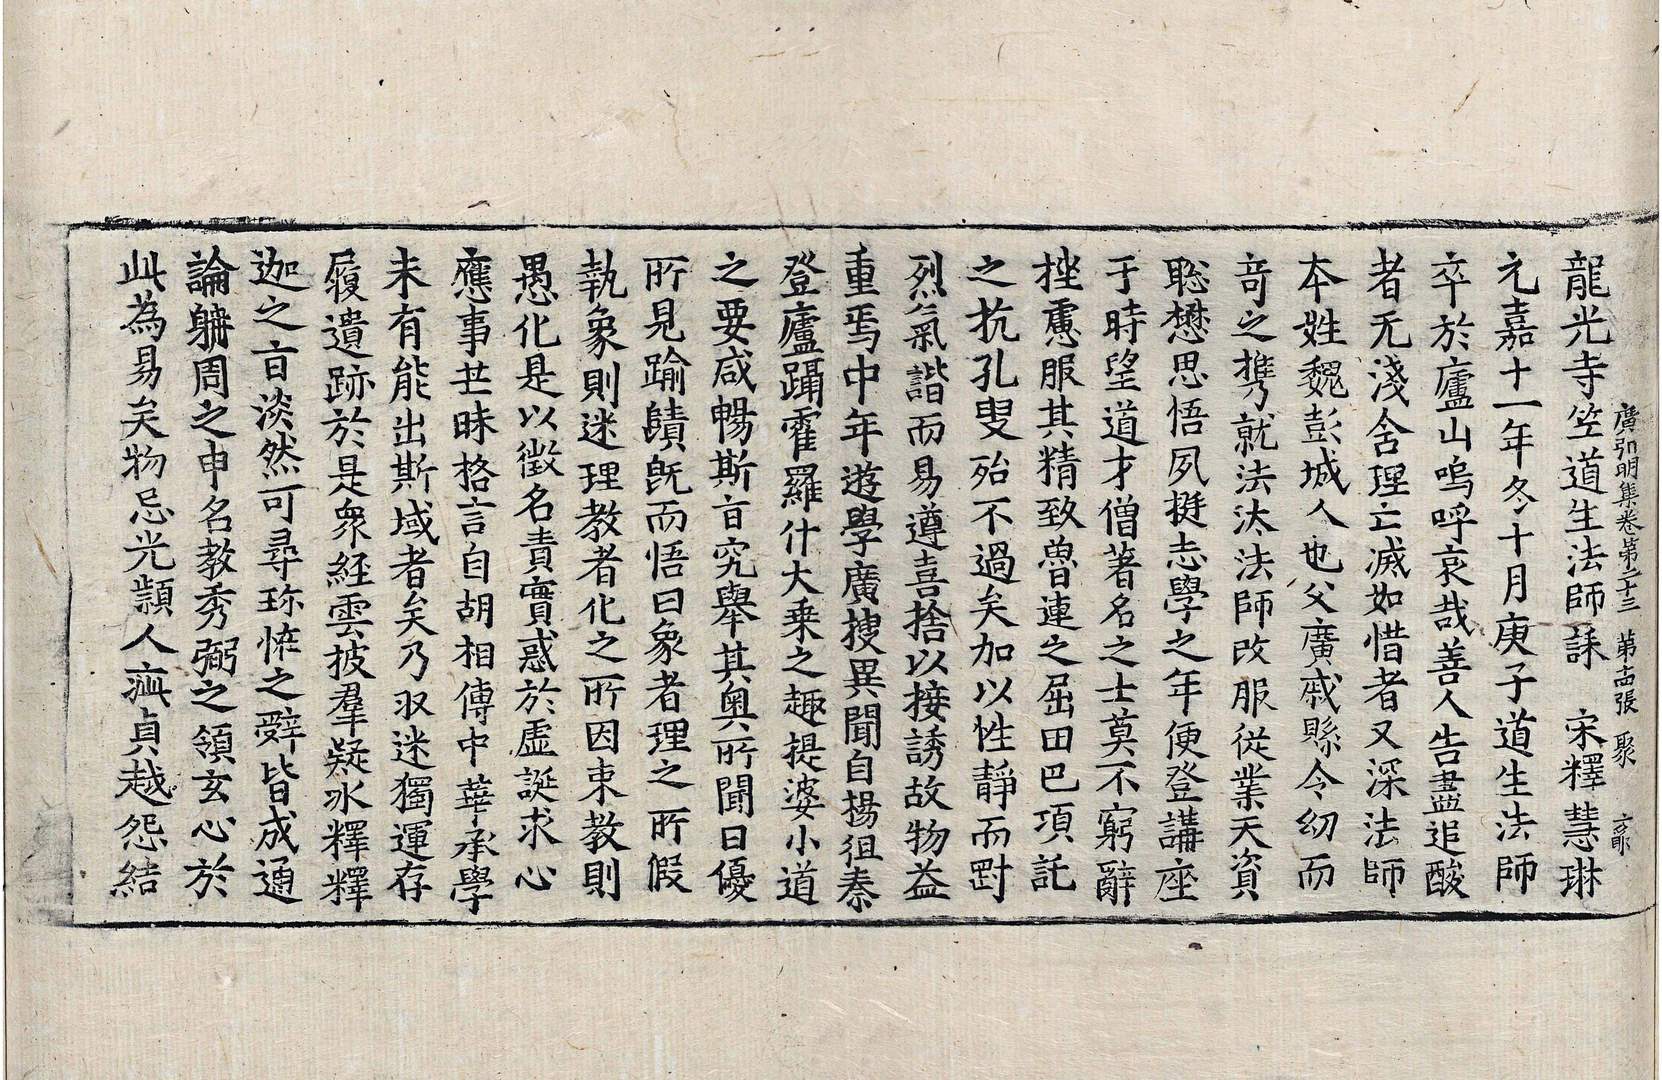 廣弘明集卷第二十三　第高張　聚
龍光寺竺道生法師誄　宋釋慧琳
元嘉十一年冬十月庚子道生法師
卒於廬山嗚呼哀哉善人告盡追酸
者无淺含理亡滅如惜者又深法師
本姓魏彭城人也父廣戚縣令幼而
奇之携就法汰法師改服從業天資
聡懋思悟夙挺志學之年便登講座
于時望道才僧著名之士莫不窮辭
挫慮服其精致魯連之屈田巴項託
之抗孔叟殆不過矣加以性靜而對
烈氣諧而易遵喜捨以接誘故物益
重焉中年遊學廣搜異聞自揚徂秦
登廬躡霍羅什大乗之趣提婆小道
之要咸暢斯旨究舉其奧所聞日優
所見踰賾旣而悟曰象者理之所假
執象則迷理教者化之所因束教則
愚化是以徵名責實惑於虛誕求心
應事芒昧格言自胡相傳中華承學
未有能出斯域者矣乃収迷獨運存
履遺跡於是衆經雲披羣疑氷釋釋
迦之旨淡然可尋珎恠之辭皆成通
論躰周之申名教秀弼之領玄心於
此為易矣物忌光顈人疵貞越怨結